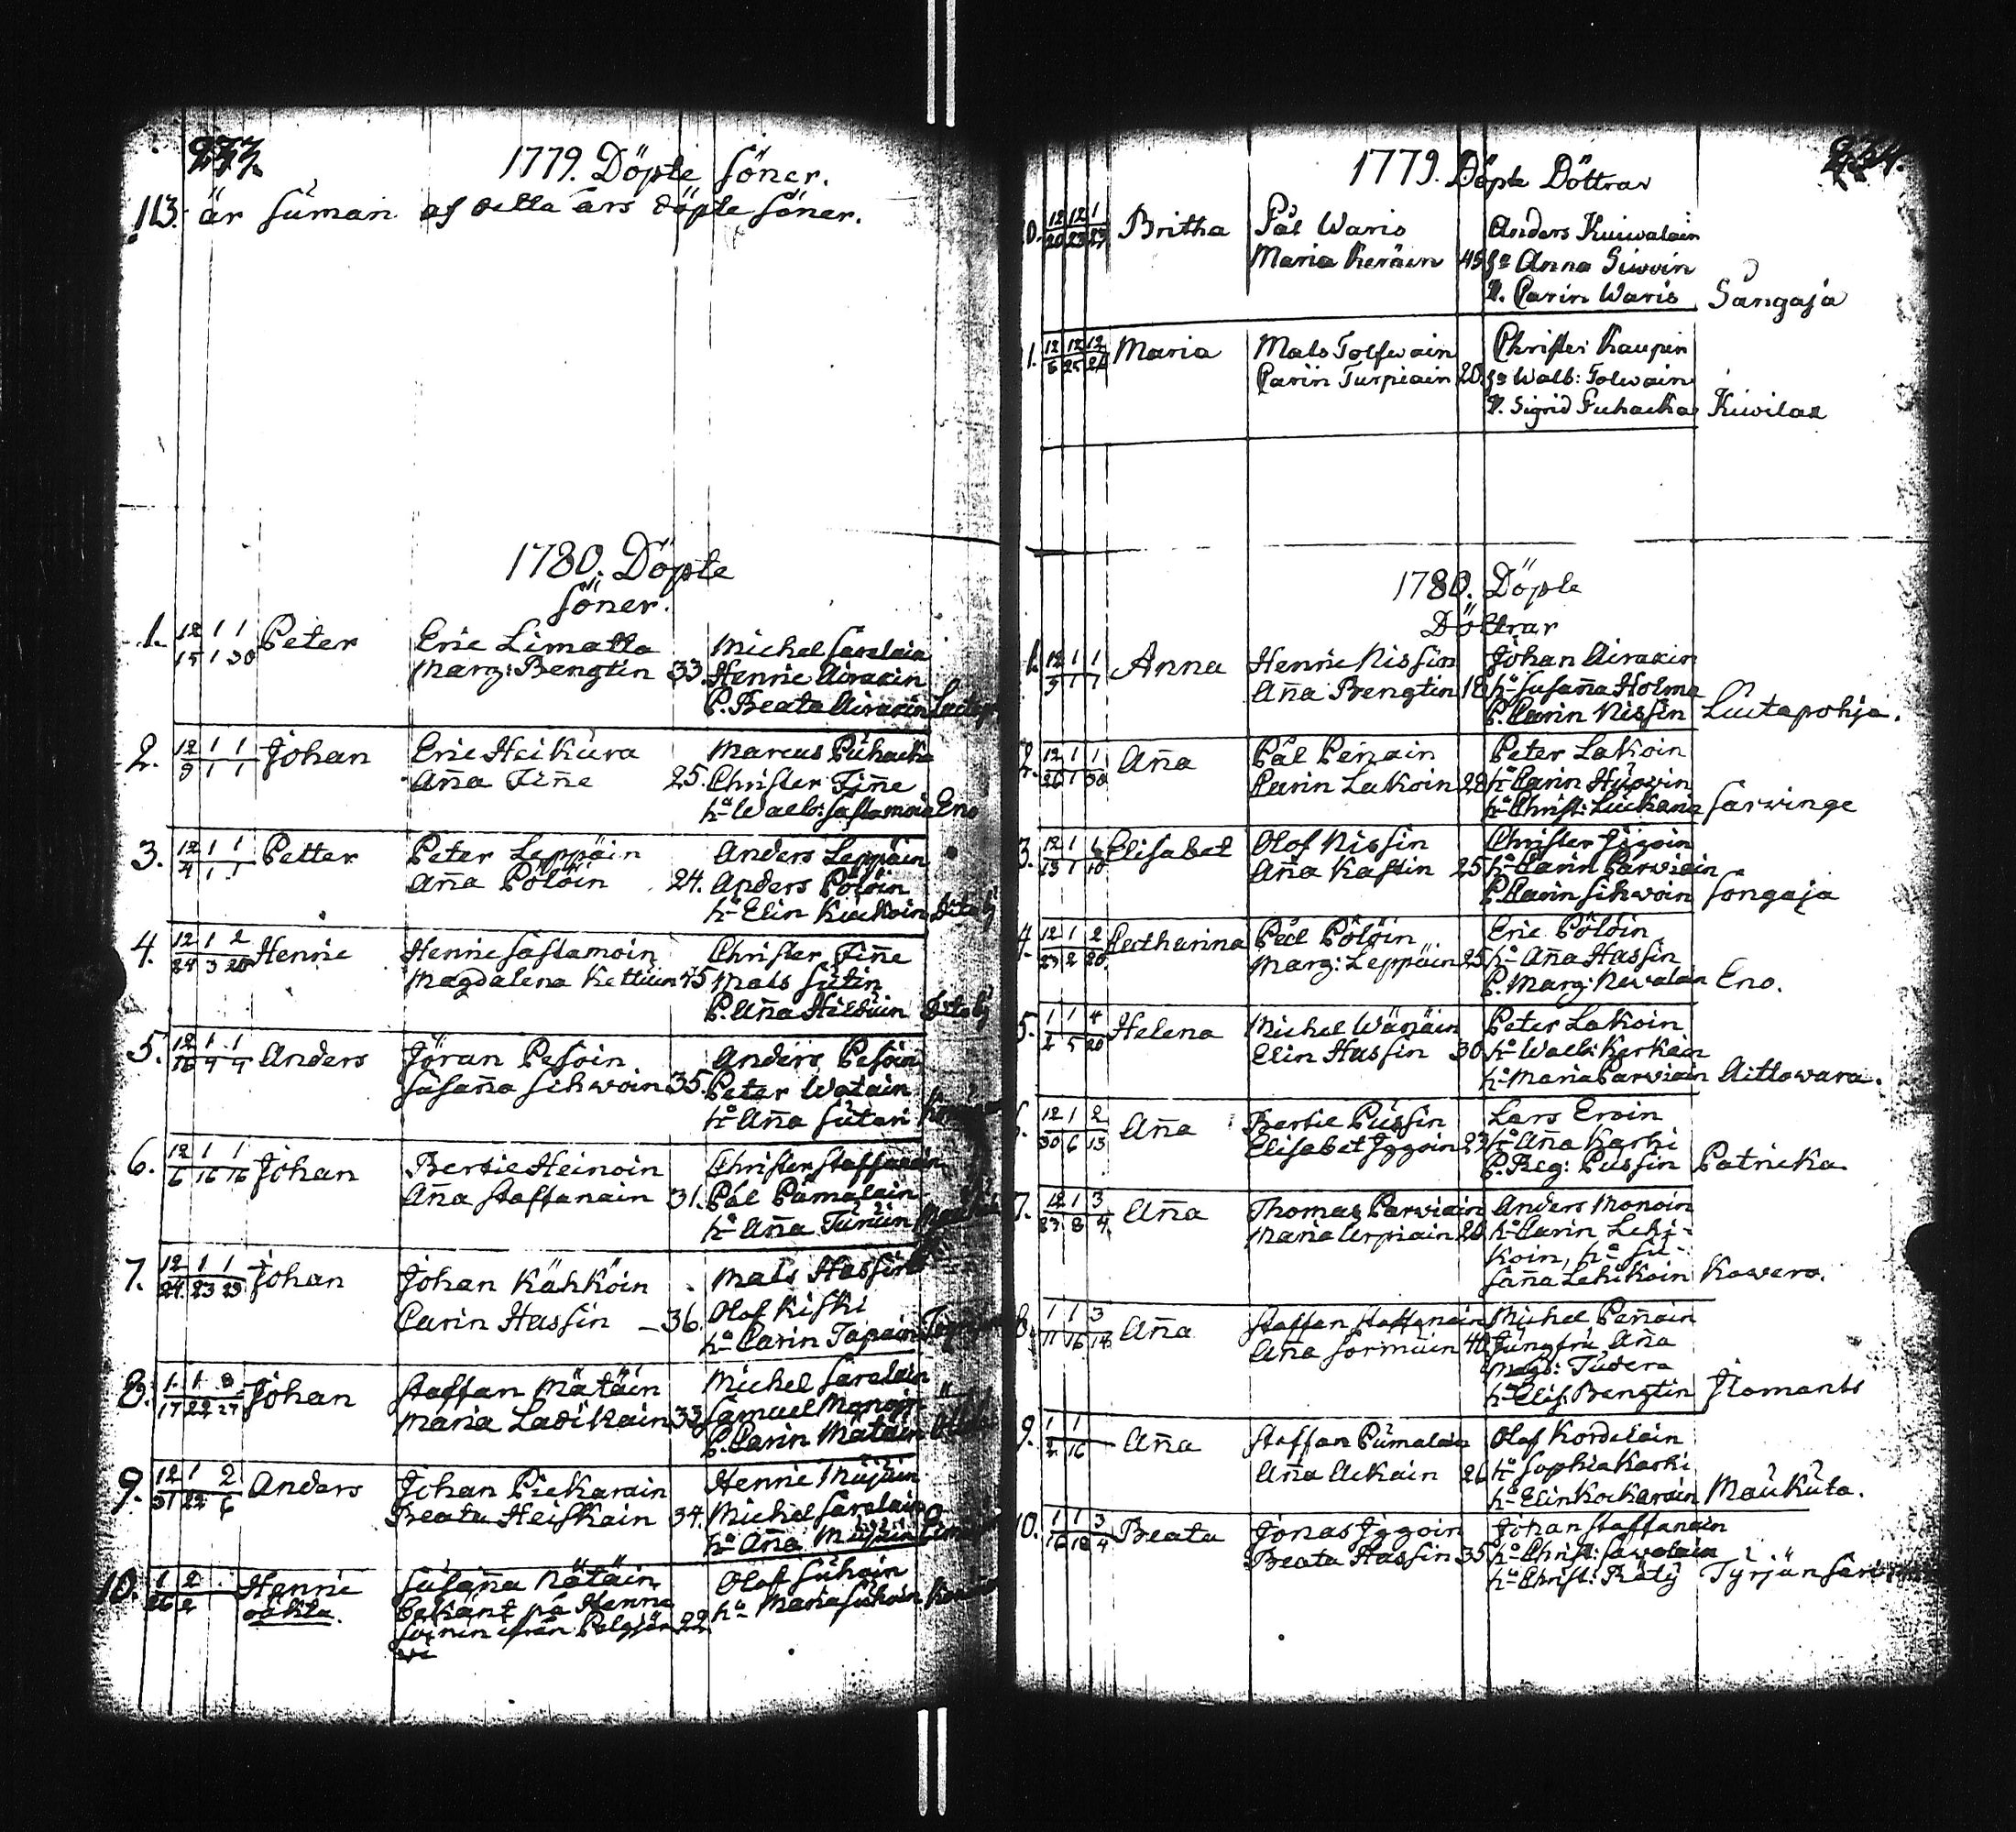 233.
1779. Döpte Söner.
113. är Suman af detta års döpte Söner.
1780. Döpte
Söner.
1. 12 1 1 Peter Eric Limatta Michel Savolain
15 1 30 Marg: Bengtin 33. Henric Airaxin
P. Beata Airaxin
2. 12 1 1 Johan Eric Heikura Marcus Puhacka
9 1 1 Aña Fiñe 25. Christer Fiñe
h:r Walb: Sastamoin Eno
3. 12 1 1 Petter Peter Leppäin Anders Leppäin
4 1 1 Aña Pölöin 24. Anders Pölöin
h:r Elin Kiukoin
4. 12 1 2 Henric Henric Sastamoin Christer Fiñe
24 3 20 Magdalena Kettuin 45 Mats Sutin
P. Aña Hilduin
5. 12 1 1 Anders Jöran Pesoin Anders Pesoin
16 4 4 Susaña Sihwoin 35. Peter Watain
h:r Aña Sutari
6. 12 1 1 Johan Bertil Heinoin Christer Staffanain
6 16 16 Aña Staffanain 31. Pål Pumalain
h:r Aña Turuin
7. 12 1 1 Johan Johan Kähköin Mats Hassin
24 23 29 Carin Hassin 36. Olof Kiski
h:r Carin Tapain
8. 1 1 8 Johan Staffan Mätäin Michel Savolain
17 22 27 Maria Ladikain 33 Samuel Monoin
P. Carin Mätäin
9. 12 1 2 Anders Johan Pickarain Henric Mujuin
31 22 6 Beata Heiskain 34. Michel Savolain
h:r Aña
10. 1 2 Henric Susaña Nätäin Olof Suhoin
26 2 oäkta. bekant på Henric h:r Maria Suhoin
Soinin ifrån Pelgjär 22
vi
234.
1779. Döpte Döttrar
0. 12 12 1 Britha Pål Waris Anders Kuiwalain
20 23 23 Maria Keräin 45 h:u Anna Siwoin
P. Carin Waris Sångaja
1. 12 12 12 Maria Mats Tolfwain Christer Kaupin
6 25 26 Carin Turpiain 20. h:u Walb: Tolwain
P. Sigrid Puhacka Kuivilax
1780. Döpte
Döttrar
1. 12 1 1 Anna Henric Nissin Johan Airaxin
3 1 1 Aña Bengtin 18 h:u Susaña Holma
P. Carin Nissin Luutapohja.
2. 12 1 1 Aña Pål Peñain Peter Lakoin
26 1 30 Carin Lakoin 28 h:r Carin Hupoin
h:r Christ: Luukain Sarvinge
3. 12 1 1 Elisabet Olof Nissin Christer Iggoin
13 1 10 Aña Kastin 25 h:r Carin Parviain
P. Carin Sihwoin Songaja
4. 12 1 2 Catharina Pål Pölöin Eric Pölöin
23 2 20 Marg: Leppäin 25 h:r Aña Hassin
P. Marg: Nevalain Eno.
5. 1 1 4 Helena Michel Wänäin Peter Lakoin
2 5 20 Elin Hassin 30 h:r Walb: Kerkäin
h:r Maria Parviain Aittowara.
6. 12 1 2 Aña Bertil Pussin Lars Ervin
30 6 13 Elisabet Iggoin 23 h:r Aña Karhi
P. Reg: Pussin Patricka
7. 12 1 3 Aña Thomas Parviain Anders Monoin
27 8 4 Maria Urpiain 20 h:r Carin Lehi-
koin, h:r Su-
saña Lehikoin Kowero.
8. 1 1 3 Aña Staffan Staffanain Michel Peñain
11 16 18 Aña Sormuin 40 Jungfru Aña
Magd: Tudera
h:r Elis: Bengtin Ilomants
9. 1 1 Aña Staffan Pumalain Olof Kordelain
2 16 Aña Ackain 26 h:r Sophia Karhi
h:r Elin Kockarain Maukuta.
10. 1 1 3 Beata Jonas Iggoin Johan Staffanain
16 18 4 Beata Hassin 35 h:r Christ: Savolain
h:r Christ: Räty